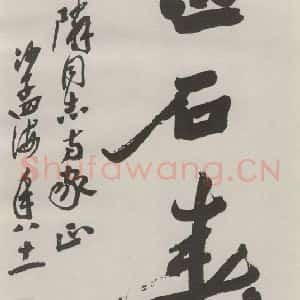 石
隣同志方家正
沙孟海年八十一
Shufawang.CN